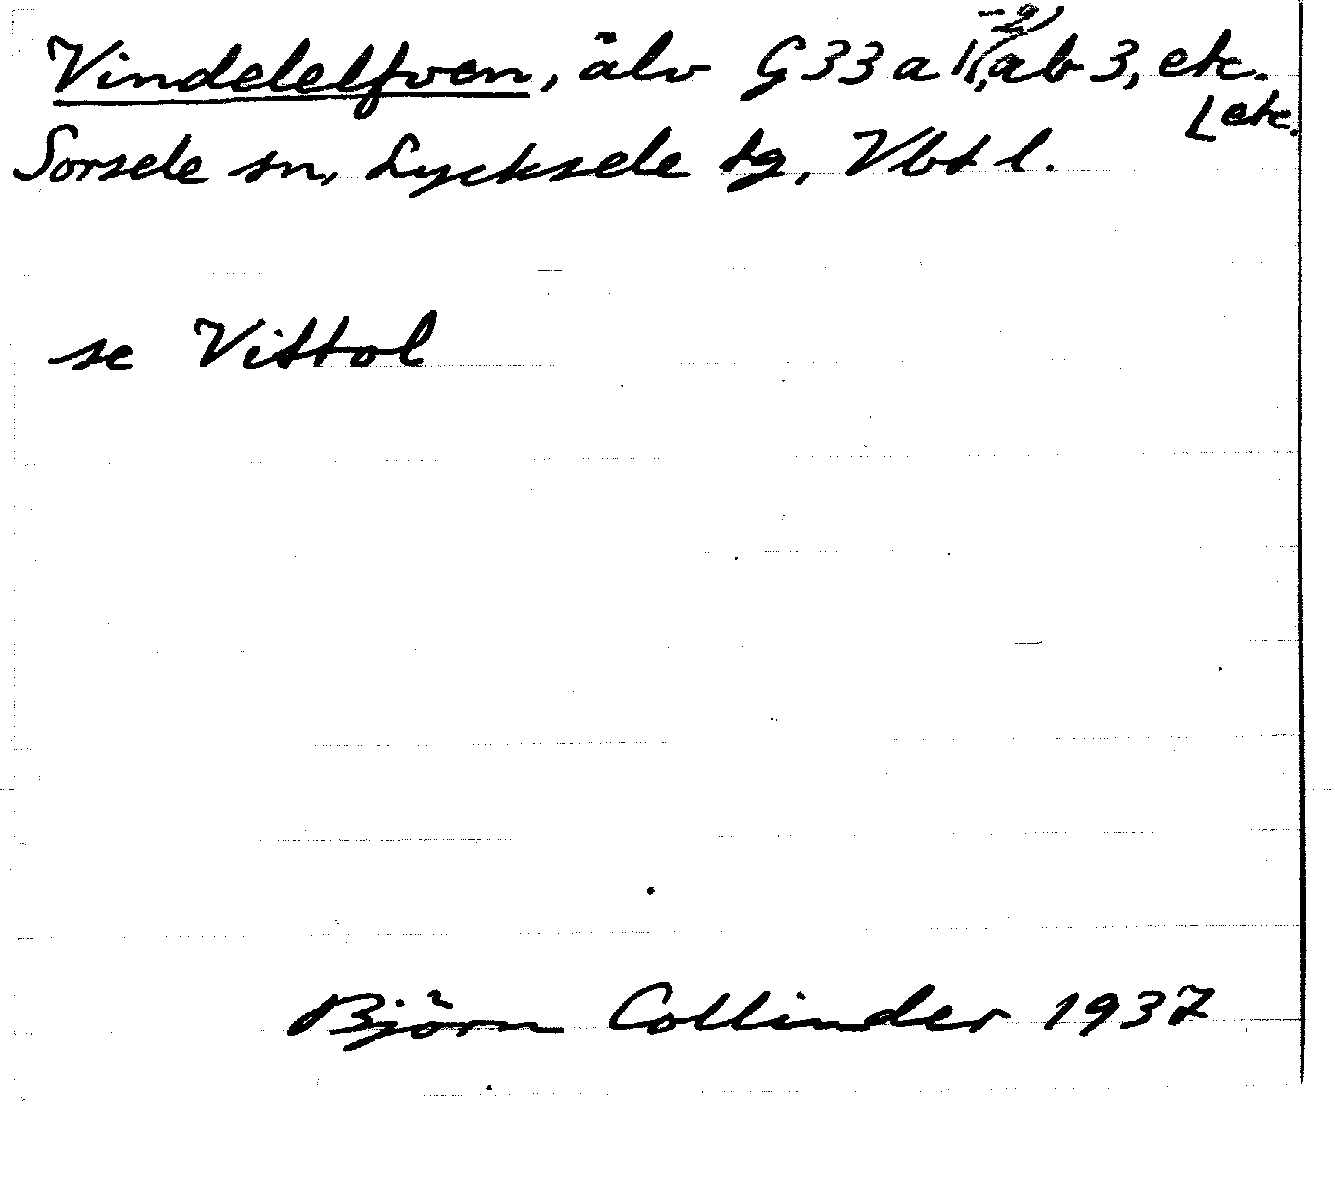 Vindelelfven, älv G 33 a 1-2, ab 3, etc.
etc.
Sorsele sn, Lycksele tg, Vbt l.
se Vittol
Björn Collinder 1937